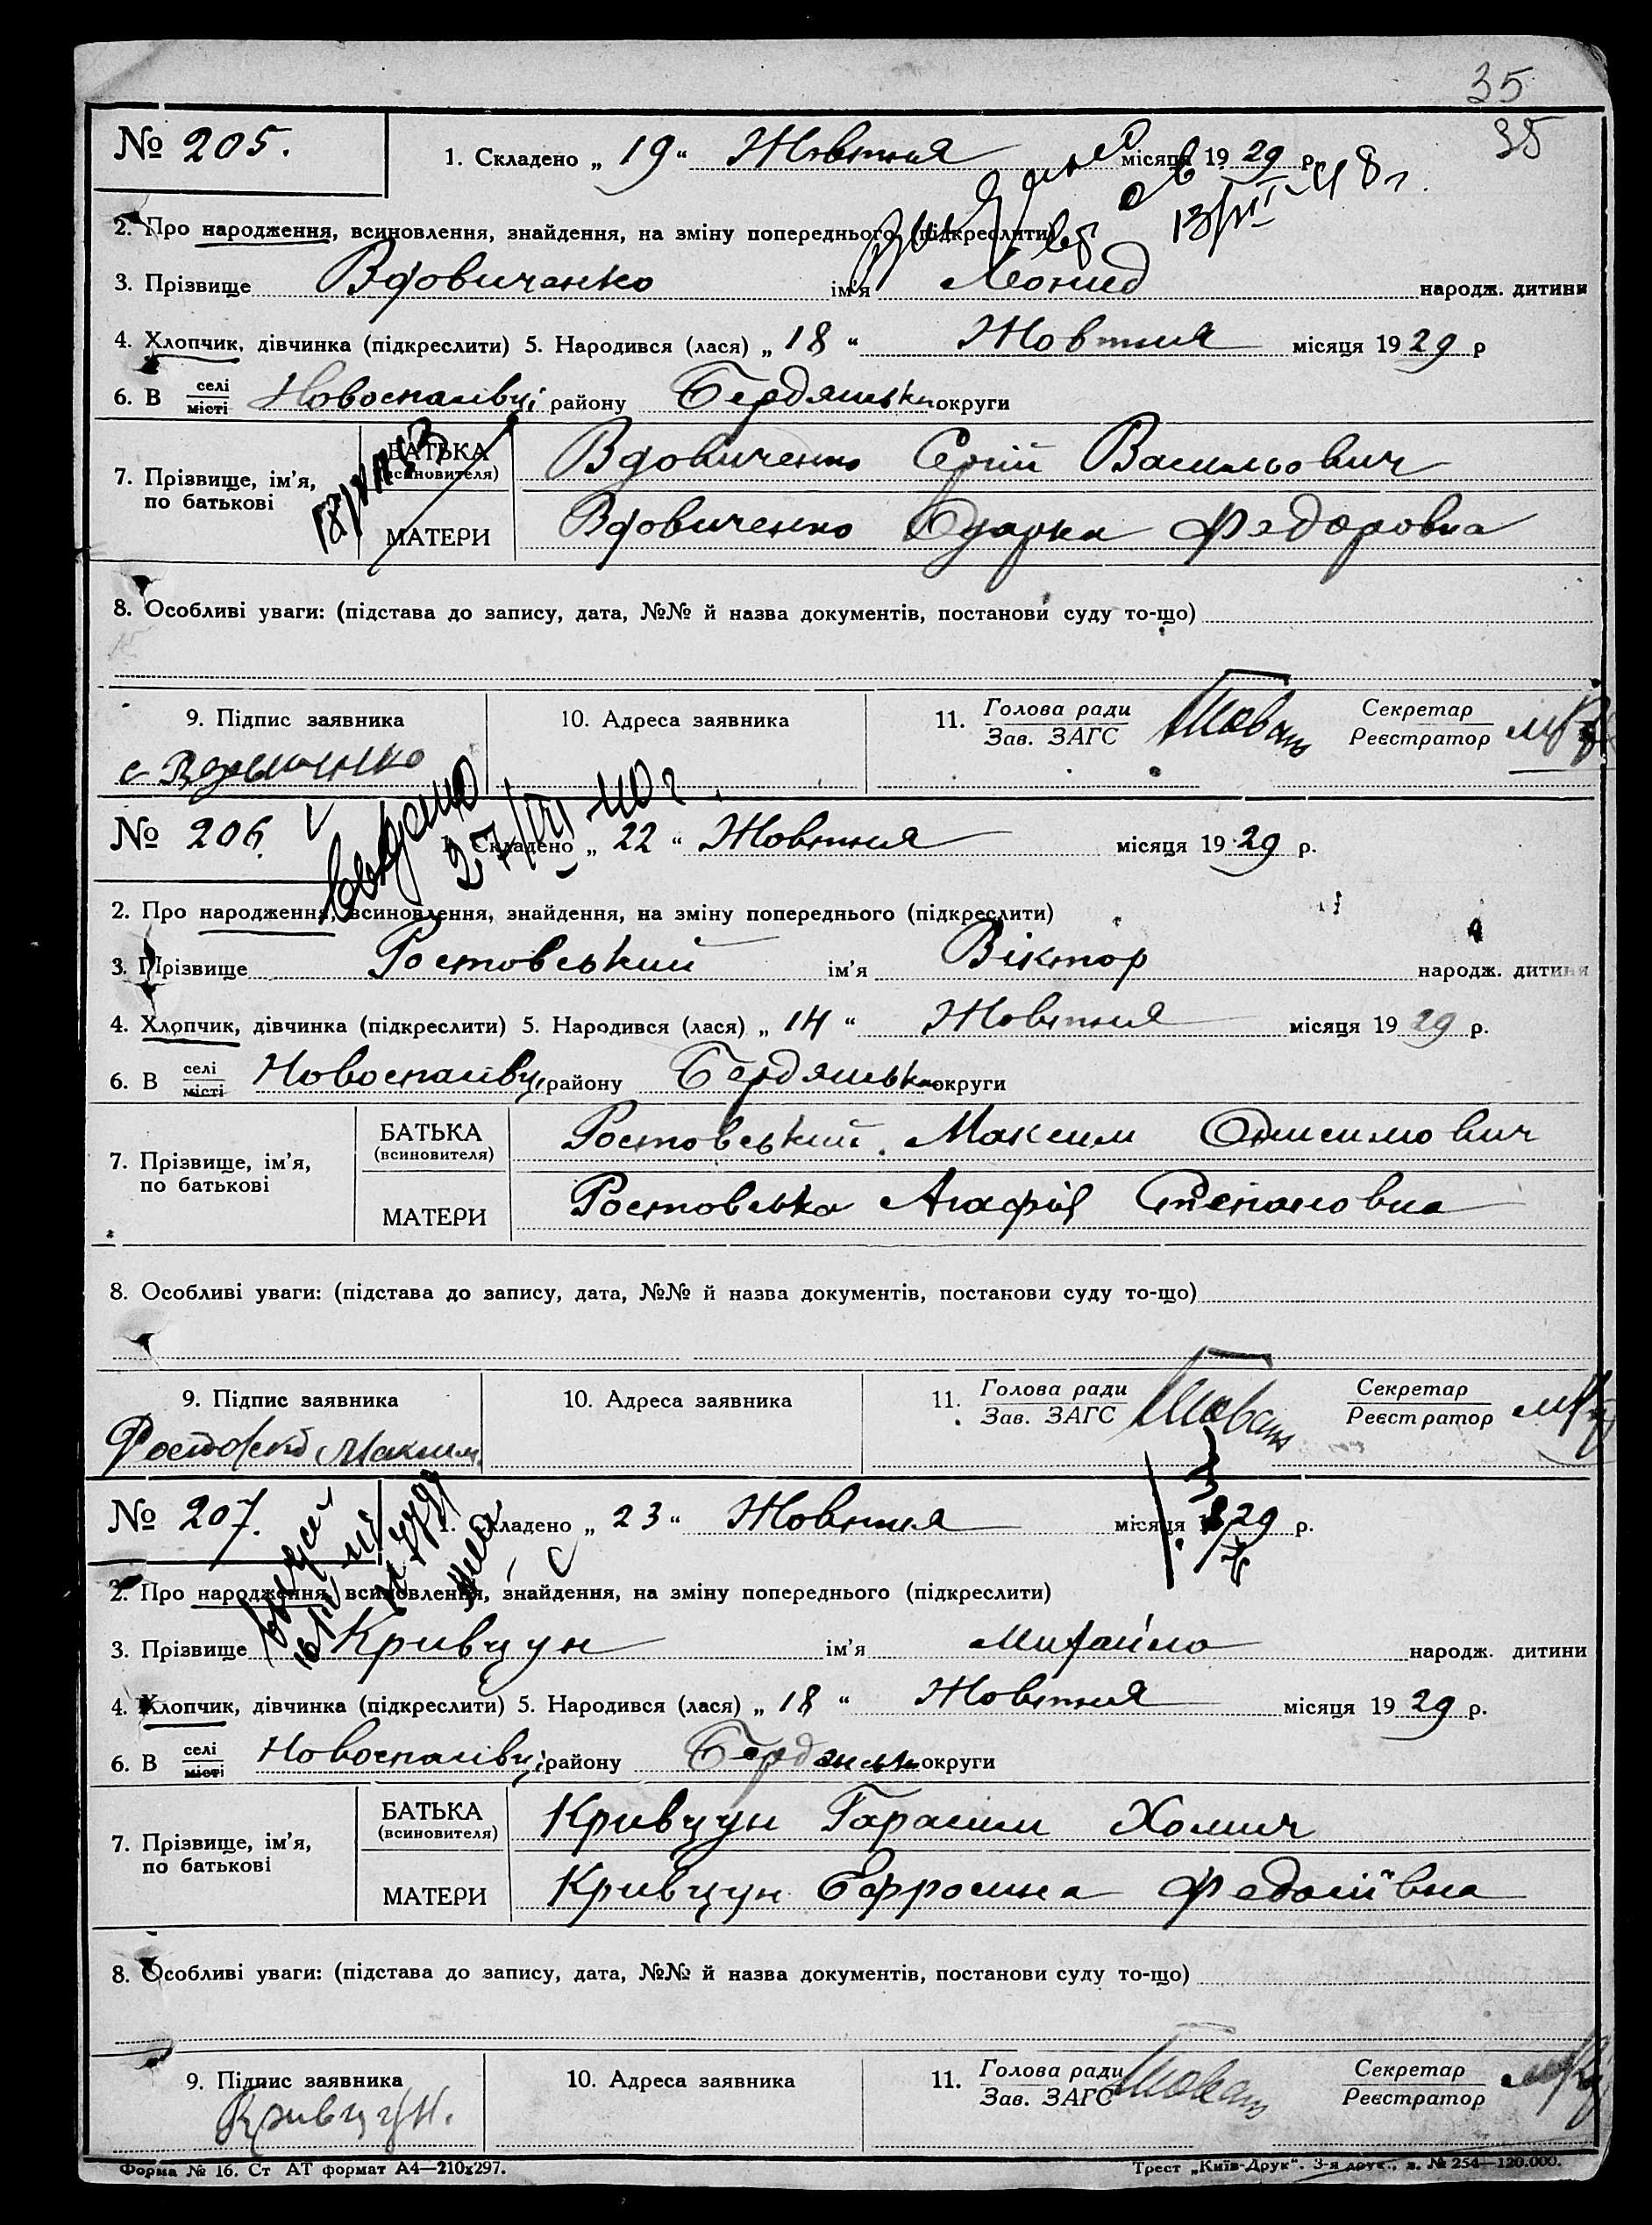 35
35
№ 205. 1. Складено „ 19 “ Жовтня місяця 19 29 р.
13/III-48 г.
2. Про народження, всиновлення, знайдення, на зміну попереднього (підкреслити)
3. Прізвище Вдовиченко ім'я Леонид народж. дитини
4. Хлопчик, дівчинка (підкреслити) 5. Народився (лася) „ 18 “ Жовтня місяця 19 29 р
6. В селі місті Новоспасівці району Бердянськ округи
7. Прізвище, ім'я, по батькові БАТЬКА (всиновителя) Вдовиченко Сергій Васильович
МАТЕРИ Вдовиченко Одарка Федоровна
8. Особливі уваги: (підстава до запису, дата, №№ й назва документів, постанови суду то-що)
9. Підпис заявника 10. Адреса заявника 11. Голова ради Зав. ЗАГС Секретар Реєстратор
с Вдовиченко
№ 206. 1. Складено „ 22 “ Жовтня місяця 19 29 р.
видано
27/VI 40 г.
2. Про народження, всиновлення, знайдення, на зміну попереднього (підкреслити)
3. Прізвище Ростовський ім'я Віктор народж. дитини
4. Хлопчик, дівчинка (підкреслити) 5. Народився (лася) „ 14 “ Жовтня місяця 19 29 р.
6. В селі місті Новоспасівці району Бердянськ округи
7. Прізвище, ім'я, по батькові БАТЬКА (всиновителя) Ростовський Максим Онисимович
МАТЕРИ Ростовська Агафія Степановна
8. Особливі уваги: (підстава до запису, дата, №№ й назва документів, постанови суду то-що)
9. Підпис заявника 10. Адреса заявника 11. Голова ради Зав. ЗАГС Секретар Реєстратор
Ростовский Максим.
№ 207. 1. Складено „ 23 “ Жовтня місяця 1929 р.
2. Про народження, всиновлення, знайдення, на зміну попереднього (підкреслити)
3. Прізвище Кривцун ім'я Михайло народж. дитини
4. Хлопчик, дівчинка (підкреслити) 5. Народився (лася) „ 18 “ Жовтня місяця 19 29 р.
6. В селі місті Новоспасівці району Бердянськ округи
7. Прізвище, ім'я, по батькові БАТЬКА (всиновителя) Кривцун Гарасим Хомич
МАТЕРИ Кривцун Ефросина Федосіївна
8. Особливі уваги: (підстава до запису, дата, №№ й назва документів, постанови суду то-що)
9. Підпис заявника 10. Адреса заявника 11. Голова ради Зав. ЗАГС Секретар Реєстратор
Кривцун.
Форма № 16. Ст АТ формат А4—210х297. Трест „Київ-Друк“. 3-я друк., з. № 254—120.000.